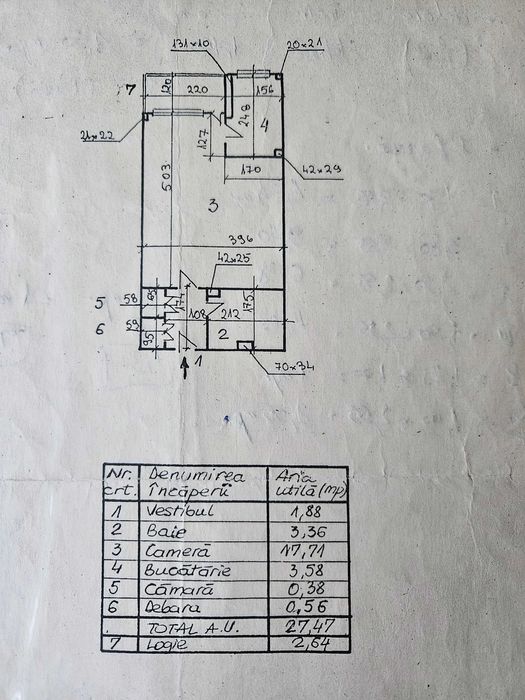 131x10
20x21
7
120
220
156
248
4
21x22
127
42x29
503
170
3
396
42x25
65
5
58
177
175
108
212
6
59
95
2
1
70x34
Nr. crt.
Denumirea încăperii
Aria utilă (mp)
1 Vestibul 1,88
2 Baie 3,36
3 Cameră 17,71
4 Bucătărie 3,58
5 Cămară 0,38
6 Debara 0,56
TOTAL A.U. 27,47
7 Logie 2,64